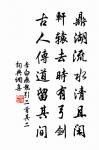 鼎湖流水清且閑
軒轅去時有弓劍
古人傳道留其間
李白飛龍引二首其二